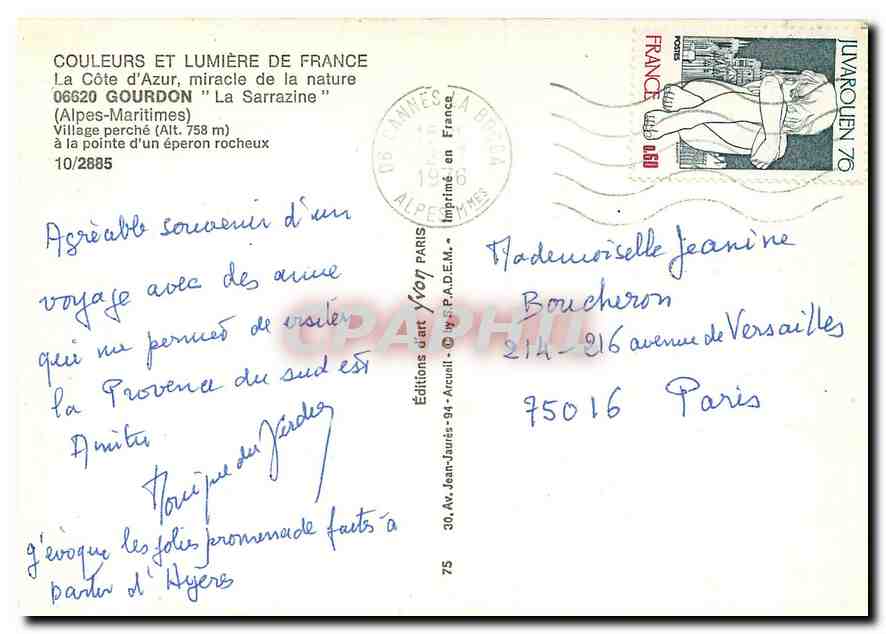 COULEURS ET LUMIÈRE DE FRANCE
La Côte d'Azur, miracle de la nature
06620 GOURDON " La Sarrazine "
(Alpes-Maritimes)
Village perché (Alt. 758 m)
à la pointe d'un éperon rocheux
10/2885
Agréable souvenir d'un
voyage avec des amie
qui me permet de visiter
la Provence du sud est
Amitié
Monique du
J'évoque les jolies promenade faites à
partir d'Hyères
75
Éditions d'art Yvon PARIS
30. Av. Jean-Jaurès - 94 - Arcueil - © by S.P.A.D.E.M. - Imprimé en France
06 CANNES LA BOCCA
1976
ALPES MMES
JUVAROUEN 76
POSTES
FRANCE
0,60
Mademoiselle Jeanine
Boucheron
214-216 avenue de Versailles
75016 Paris
CPAPHIL